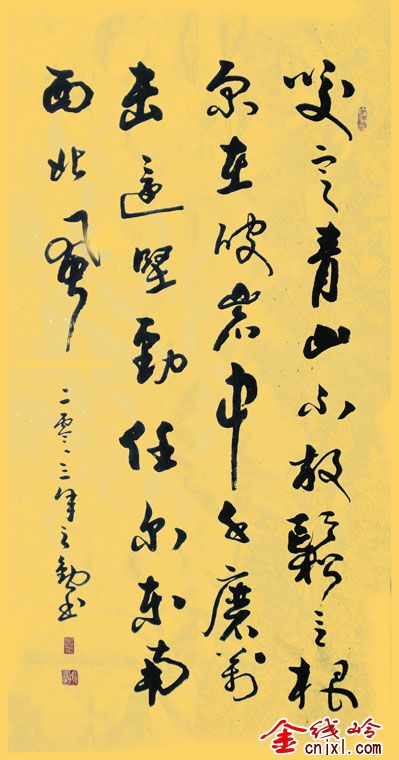 咬定青山不放鬆立根
原在破岩中千磨萬
击還堅勁任尔东南
西北風
二零一三年之书
金线岭
cnjxl.com